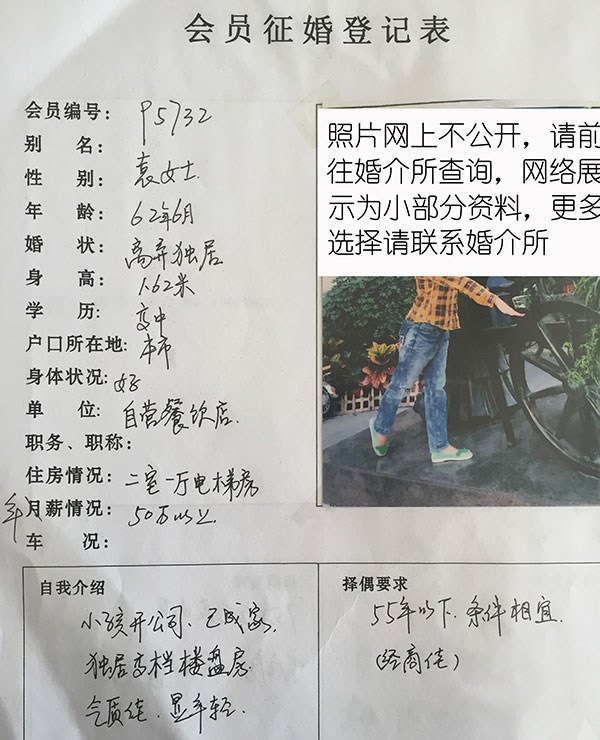 会员征婚登记表
会员编号: P5732
别 名:
性 别: 袁女士
年 龄: 62年6月
婚 状: 离异独居
身 高: 1.62米
学 历: 高中
户口所在地: 本市
身体状况: 好
单 位: 自营餐饮店.
职务、职称:
住房情况: 二室一厅电梯房
年 月薪情况: 50万以上
车 况:
照片网上不公开，请前
往婚介所查询，网络展
示为小部分资料，更多
选择请联系婚介所
自我介绍
小孩开公司、已成家.
独居高档楼盘房
气质佳、显年轻.
择偶要求
55年以下.条件相宜.
(经商佳)